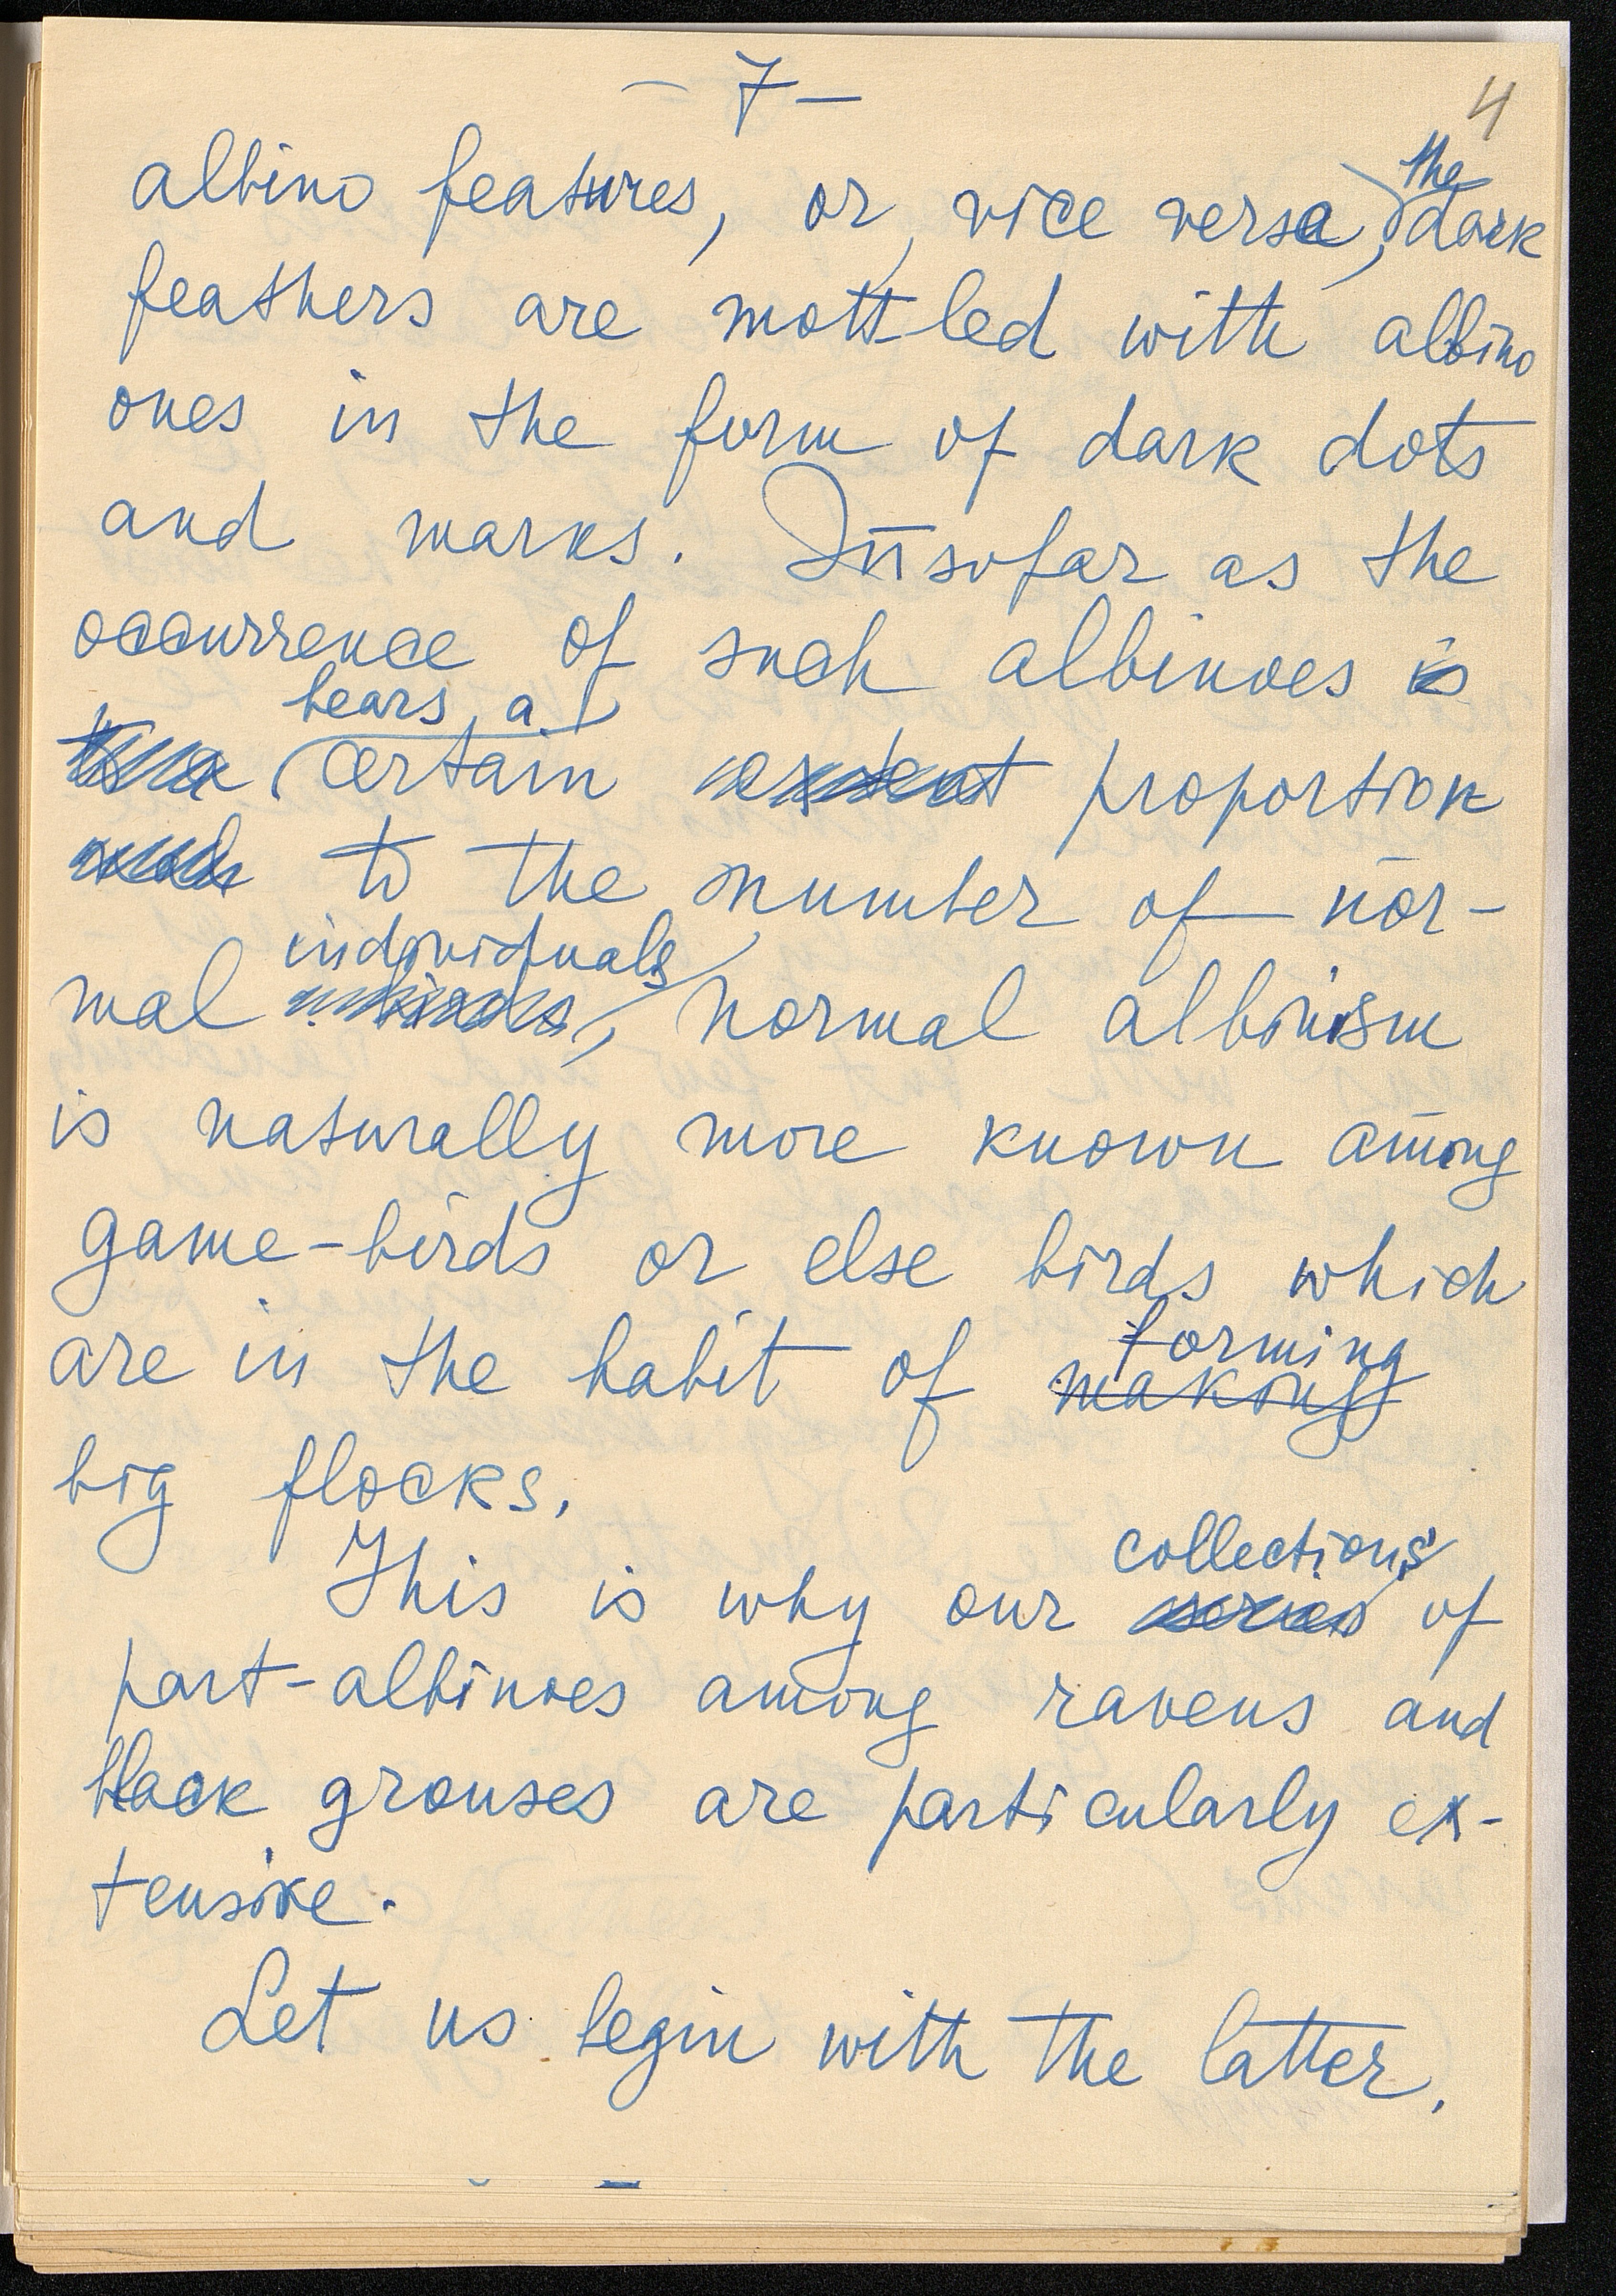 - 7 -
4
albino features, or, vice versa, the dark
feathers are mottled with albino
ones in the form of dark dots
and marks. Insofar as the
occurrence of such albinoes is
bears a
certain extent proportion
to the number of nor-
individuals
mal, normal albinism
is naturally more known among
game-birds or else birds which
forming
are in the habit of making
big flocks.
collections
This is why our series of
part-albinoes among ravens and
black grouses are particularly ex-
tensive.
Let us begin with the latter.